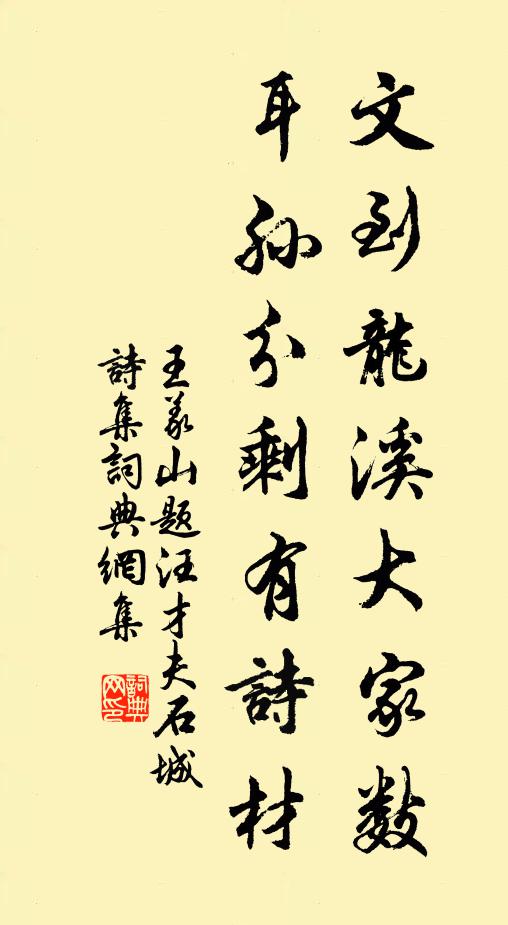 文到龍溪大家數
耳孫分剩有詩材
王義山題汪才夫石城
詩集詞典網集
詞典网印